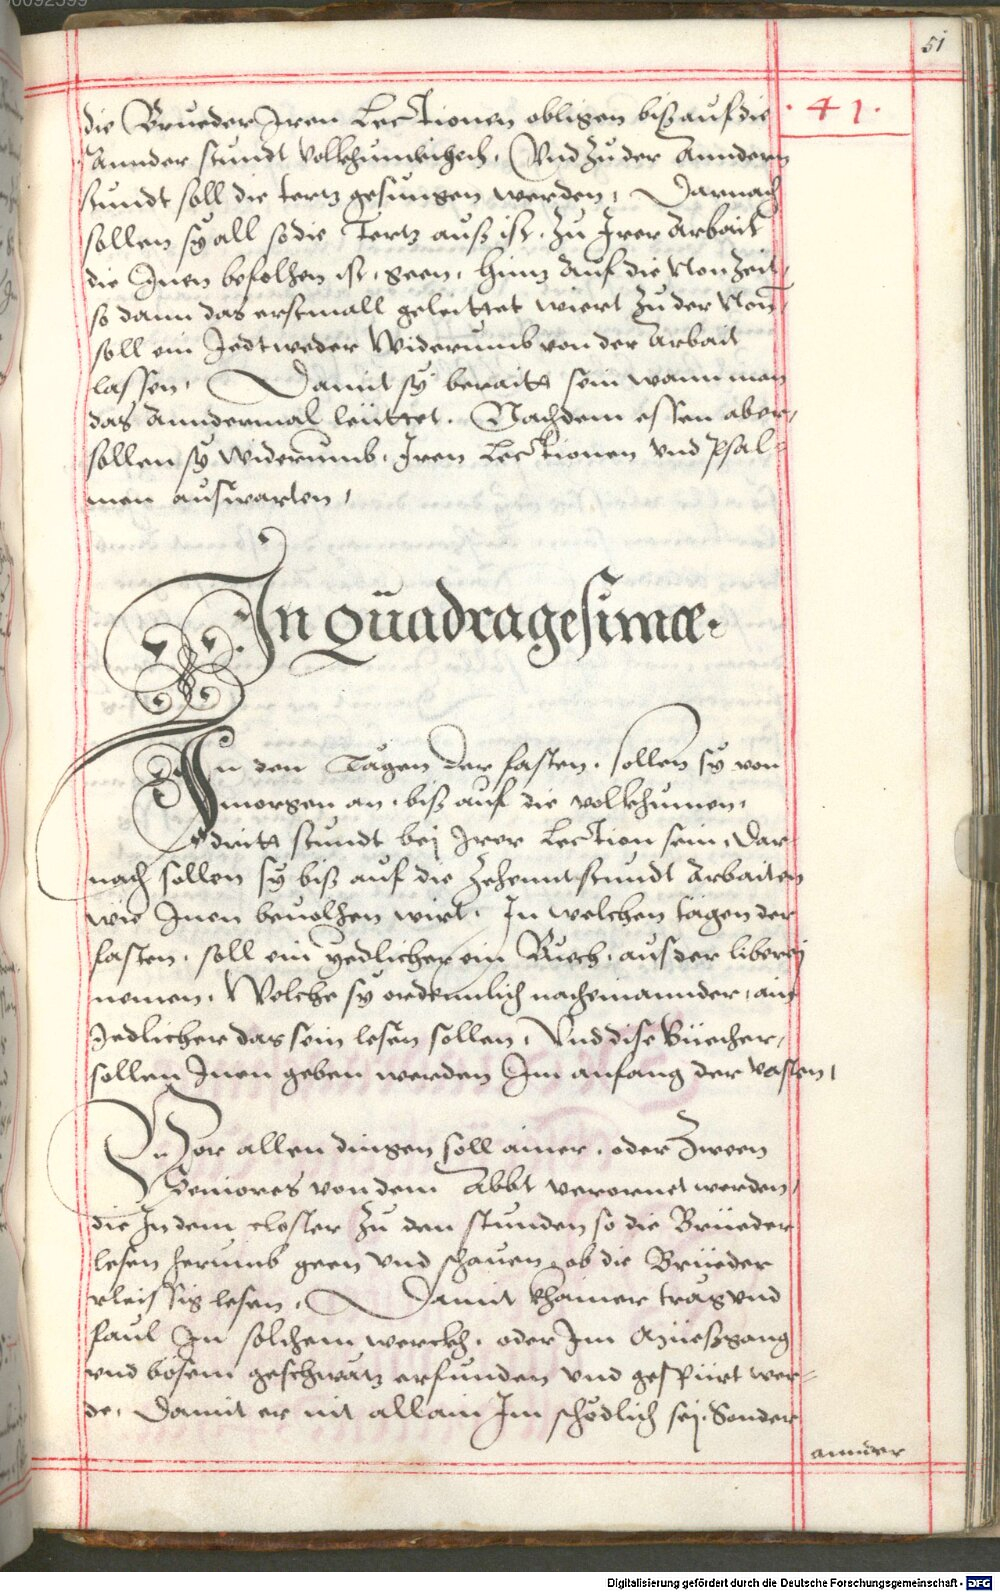 51
· 41 ·
die Brueder Iren Lectionen obligen biß auf die
Annder stundt volkhumenlich. Vnd zu der Anndern
stundt soll die tertz gesungen werden, Darnach
sollen sy all so die Tertz auß ist, zu Irer Arbait
die Inen befolhen ist, geen, hintz auf die Non Zeit,
so dann das erstmall geleittet wiert zu der Non,
soll ein Jedtweder Widerumb von der Arbait
lassen, Damit sy beraitt sein wann man
das Anndermal leüttet. Nachdem essen aber,
sollen sy widerumb, Iren Lectionen vnd Psal=
men außwarten,
In Quadragesimæ.
In den Tägen der fasten, sollen sy von
morgen an, biß auf die volkhumen,
dritt stundt bej Irer Lection sein, Dar
nach sollen sy biß auf die Zehenntstundt Arbaiten
wie Inen beuolhen wirt. In welchen tägen der
fasten, soll ein yedlicher ein Buech, aus der liberej
nemen, Welche sy ordennlich nacheinannder, ain
Jedlicher das sein lesen sollen, Vnd dise Büecher,
sollen Inen geben werden Im anfang der Vasten,
Vor allen dingen soll ainer, oder Zween
Seniores von dem Abbt verornet werden,
die In dem closter zu den stunden so die Brüeder
lesen herumb geen vnd schauen, ob die Brüeder
vleissig lesen, Damit khainer träg vnd
faul In solchem werckh, oder Im Müessgang
vnd bösem geschwätz erfunden vnd gespürt wer=
de, Damit er nit allain Im schödlich sej, Sonder
annder
Digitalisierung gefördert durch die Deutsche Forschungsgemeinschaft - DFG